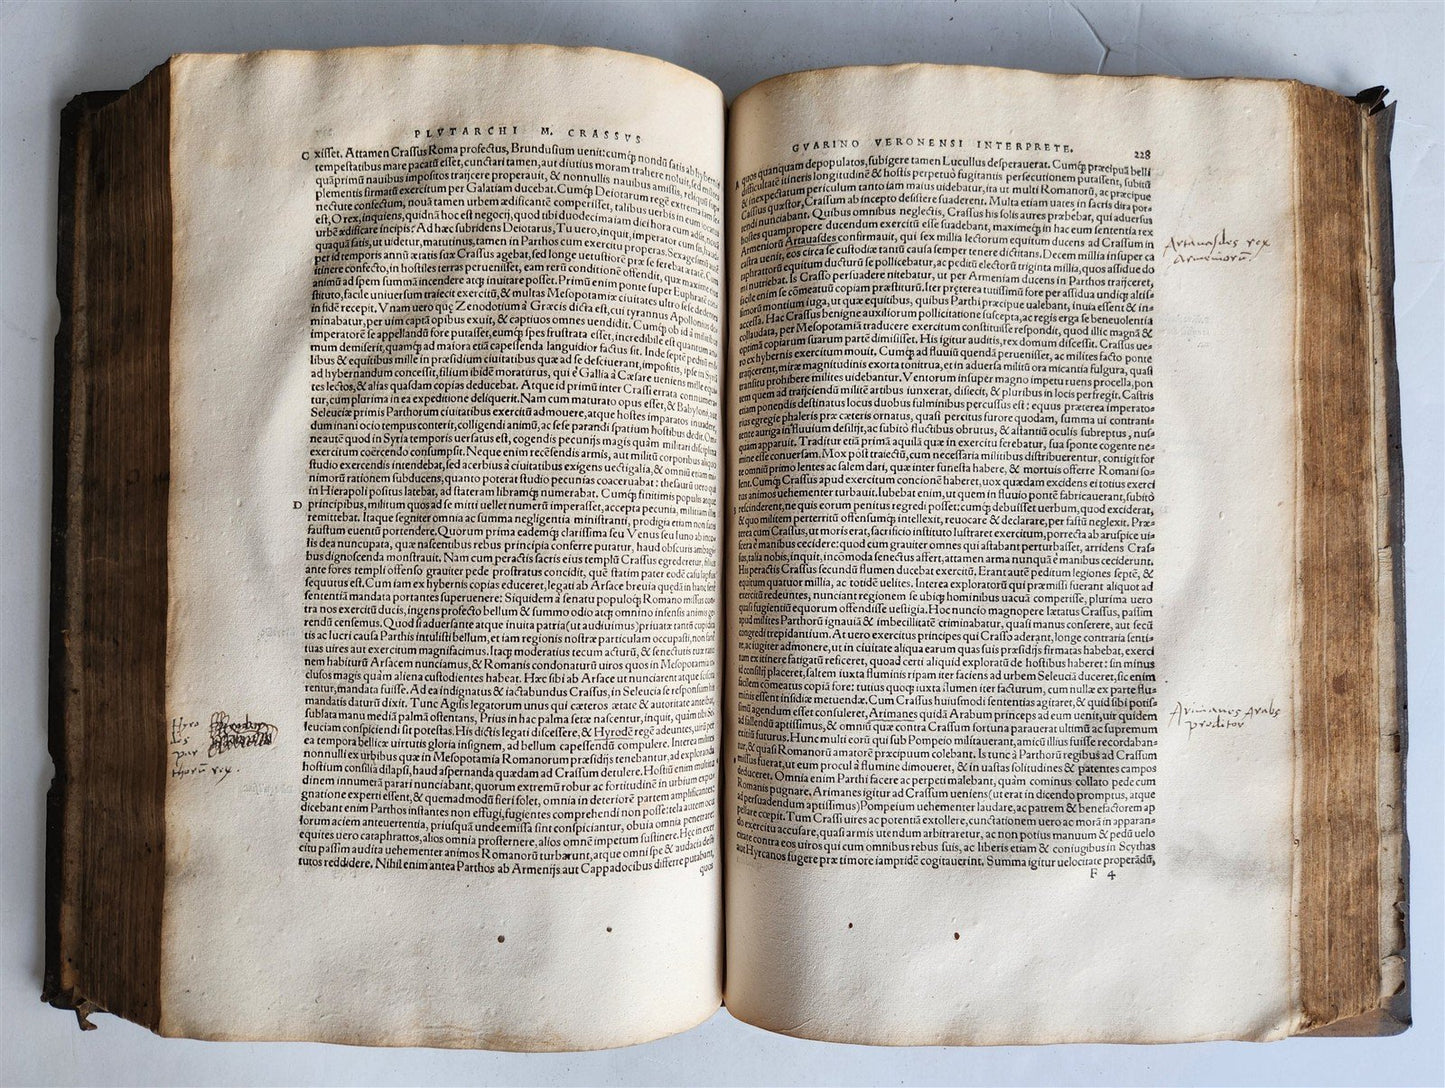 PLVTARCHI M. CRASSVS
C xisset. Attamen Crassus Roma profectus, Brundusium uenit: cumq; nondū satis ab hybernis
tempestatibus mare pacatū esset, cunctari tamen, aut diutius moram trahere noluit, sed milites
quāprimū nauibus impositos traijcere properauit, & nonnullis nauibus amissis, reliquū
plementis firmatū exercitum per Galatiam ducebat. Cumq; Deiotarum regē extrema iam se
nectute confectum, nouā tamen urbem ædificantē comperisset, talibus uerbis in eum iocatus
est, O rex, inquiens, quidnā hoc est negocij, quod tibi duodecima iam diei hora cum adsit, nouā
urbē ædificare incipis? Ad hæc subridens Deiotarus, Tu uero, inquit, imperator cum sis,
quaquā satis, ut uidetur, matutinus, tamen in Parthos cum exercitu properas. Sexagesimū
per id temporis annū ætatis suæ Crassus agebat, sed longe uetustiorē præ se ferebat ætatē. Cum
itinere confecto, in hostiles terras peruenisset, eam rerū conditionē offendit, quæ maxime eius
animū ad spem summā incendere atq; inuitare posset. Primū enim ponte super Euphratē
stituto, facile uniuersum traiecit exercitū, & multas Mesopotamiæ ciuitates ultro sese dedentes
in fidē recepit. Vnam uero quę Zenodotium à Græcis dicta est, cui tyrannus Apollonius do
minabatur, per uim captā opibus exuit, & captiuos omnes uendidit. Cumq; ob id à militibus
imperatorē se appellandū fore putasset, cumq; spes frustrata esset, incredibile est quantum
mum demiserit, quamq; ad maiora etiā capessenda languidior factus sit. Inde septē peditū mil
libus & equitibus mille in præsidium ciuitatibus quæ ad se desciuerant, impositis, ipse in Syriā
ad hybernandum concessit, filium ibidē moraturus, qui è Gallia à Cæsare ueniens mille equi
tes lectos, & alias quasdam copias deducebat. Atque id primū inter Crassi errata connumera
tur, cum plurima in ea expeditione deliquerit. Nam cum maturato opus esset, & Babyloni, aut
Seleuciæ primis Parthorum ciuitatibus exercitū admouere, atque hostes imparatos inuadere,
dum inani ocio tempus conterit, colligendi animū, ac sese parandi spatium hostibus dedit. Om
ne autē quod in Syria temporis uersatus est, cogendis pecunijs magis quàm militari disciplina
exercitum coërcendo consumpsit. Neque enim recēsendis armis, aut militū corporibus aliquo
studio exercendis intendebat, sed acerbius à ciuitatibus exigens uectigalia, & omniū etiam mi
nimorū rationem subducens, quanto poterat studio pecunias coaceruabat: thesaurū uero qui
in Hierapoli positus latebat, ad stateram libramq; numerabat. Cumq; finitimis populis atque
D principibus, militum quos ad se mitti uellet numerū imperasset, accepta pecunia, militiam illis
remittebat. Itaque segniter omnia ac summa negligentia ministranti, prodigia etiam non
faustum euentū portendere. Quorum prima eademq; clarissima seu Venus seu Iuno ab incō
lis dea nuncupata, quæ nascentibus rebus principia conferre putatur, haud obscuris ambagi
bus dignoscenda monstrauit. Nam cum peractis sacris eius templū Crassus egrederetur, filius
ante fores templi offenso grauiter pede prostratus concidit, quē statim pater eodē casu lapsus
sequutus est. Cum iam ex hybernis copias educeret, legati ab Arsace breuia quędā in hanc ferē
sententiā mandata portantes superuenere: Siquidem à senatu populoq; Romano missus con
tra nos exercitū ducis, ingens profecto bellum & summo odio atq; omnino infensis animis ge
rendū censemus. Quod si aduersante atque inuita patria (ut audiuimus) priuatæ tantū cupidita
tis ac lucri causa Parthis intulisti bellum, et iam regionis nostræ particulam occupasti, non sanē
tuas uires aut exercitum magnifacimus. Itaq; moderatius tecum acturū, & senectutis tuæ ratio
nem habiturū Arsacem nunciamus, & Romanis condonaturū uiros quos in Mesopotamia in
clusos magis quàm aliena custodientes habeat. Hæc sibi ab Arsace ut nunciarent atque
rentur, mandata fuisse. Ad ea indignatus & iactabundus Crassus, in Seleucia se responsum his
mandatis daturū dixit. Tunc Agisis legatorum unus qui cæteros ætate & autoritate anteibat,
sublata manu mediā palmā ostentans, Prius in hac palma setæ nascentur, inquit, quàm tibi Se
leuciam conspiciendi sit potestas. His dictis legati discessere, & Hyrodē regē adeuntes, uirū per
ea tempora bellicæ uirtutis gloria insignem, ad bellum capessendū compulere. Interea milites
nonnulli ex urbibus quæ in Mesopotamia Romanorum præsidijs tenebantur, ad exploranda
hostium consilia dilapsi, haud aspernanda quædam ad Crassum detulere. Hostiū enim multitu
dinem innumerā parari nunciabant, quorum extremū robur ac fortitudinē in urbium expu
gnatione experti essent, & quemadmodū fieri solet, omnia in deteriorē partem amplificantes,
dicebant enim Parthos instantes non effugi, fugientes comprehendi non posse: tela autem ocu
lorum aciem anteuertentia, priusquā unde emissa sint conspiciantur, obuia omnia penetrare:
equites uero cataphrattos, alios omnia prosternere, alios omnē impetum sustinere. Hęc in exer
citu passim audita uehementer animos Romanorū turbarunt, atque omni spe & audacia desti
tutos reddidere. Nihil enim antea Parthos ab Armenijs aut Cappadocibus differre putabant,
quos
Hyro
des
par
thorū rex.
GVARINO VERONENSI INTERPRETE.
228
A quos quanquam depopulatos, subigere tamen Lucullus desperauerat. Cumq; præcipuā belli
difficultatē itineris longitudinē & hostis perpetuò fugitantis persecutionem putassent, subitū
& inexpectatum periculum tanto iam maius uidebatur, ita ut multi Romanorū, ac præcipue
Cassius quæstor, Crassum ab incepto desistere suaderent. Multa etiam uates in sacris dira por-
tendi nunciabant. Quibus omnibus neglectis, Crassus his solis aures præbebat, qui aduersus
hostes quampropere ducendum exercitum esse suadebant, maximeq; in hac eum sententia rex
Armeniorū Artauasdes confirmauit, qui sex millia lectorum equitum ducens ad Crassum in
castra uenit, eos circa se custodiæ tantū causa semper tenere dictitans. Decem millia insuper ca
taphrattorū equitum ducturū se pollicebatur, ac peditū electorū triginta millia, quos assiduo do
mi nutriebat. Is Crasso persuadere nitebatur, ut per Armeniam ducens in Parthos traijceret,
facile enim se cōmeatuū copiam præstiturū. Iter præterea tutissimū fore per assidua undiq; altis-
simorū montium iuga, ut quæ equitibus, quibus Parthi præcipue ualebant, inuia essent & in-
accessa. Hac Crassus benigne auxiliorum pollicitatione suscepta, ac regis erga se beneuolentia
collaudata, per Mesopotamiā traducere exercitum constituisse respondit, quod illic magnā &
optimā copiarum suarum partē dimisisset. His igitur auditis, rex domum discessit. Crassus ue-
ro ex hybernis exercitum mouit. Cumq; ad fluuiū quendā peruenisset, ac milites facto ponte
traijcerent, miræ magnitudinis exorta tonitrua, et in aduersa militū ora micantia fulgura, quasi
transitu prohibere milites uidebantur. Ventorum insuper magno impetu ruens procella, pon
tem quem ad traijciendū militē artibus iunxerat, disiecit, & pluribus in locis perfregit. Castris
etiam ponendis destinatus locus duobus fulminibus percussus est: equus præterea imperato-
rius egregie phaleris præ cæteris ornatus, quasi percitus furore quodam, summa ui contranī-
tente auriga in fluuium desilijt, ac subitò fluctibus obrutus, & astantiū oculis subreptus, nus-
quàm apparuit. Traditur etiā primā aquilā quæ in exercitu ferebatur, sua sponte cogente ne-
mine esse conuersam. Mox post traiectū, cum necessaria militibus distribuerentur, contigit for
te omniū primo lentes ac salem dari, quæ inter funesta habere, & mortuis offerre Romani so-
lent. Cumq; Crassus apud exercitum concionē haberet, uox quædam excidens ei totius exerci
tus animos uehementer turbauit. Iubebat enim, ut quem in fluuio pontē fabricauerant, subitò
B rescinderent, ne quis eorum penitus regredi posset: cumq; debuisset uerbum, quod exciderat,
& quo militem perterritū offensumq; intellexit, reuocare & declarare, per fastū neglexit. Præ-
terea cum Crassus, ut moris erat, sacrificio instituto lustraret exercitum, porrecta ab aruspice ui-
scera è manibus cecidere: quod cum grauiter omnes qui astabant perturbasset, arridens Cras-
sus, talia nobis, inquit, incōmoda senectus affert, attamen arma nunquā è manibus ceciderunt.
His peractis Crassus secundū flumen ducebat exercitū. Erant autē peditum legiones septē, &
equitum quatuor millia, ac totidē uelites. Interea exploratorū qui præmissi fuerant aliquot ad
exercitū redeuntes, nunciant regionem se ubiq; hominibus uacuā comperisse, plurima uero
quasi fugientiū equorum offendisse uestigia. Hoc nuncio magnopere lætatus Crassus, passim
apud milites Parthorū ignauiā & imbecillitatē criminabatur, quasi manus conserere, aut secū
congredi trepidantium. At uero exercitus principes qui Crasso aderant, longe contraria senti-
re, ac iugiter admonere, ut in ciuitate aliqua earum quas suis præsidijs firmatas habebat, exerci
tum ex itinere fatigatū reficeret, quoad certi aliquid exploratū de hostibus haberet: sin minus
id consilij placeret, saltem iuxta fluminis ripam iter faciens ad urbem Seleuciā duceret, sic enim
facilem cōmeatus copiā fore: tutius quoq; iuxta flumen iter facturum, cum nullæ ex parte flu-
minis essent insidiæ metuendæ. Cum Crassus huiusmodi sententias agitaret, & quid sibi potissi
mū agendum esset consuleret, Arimanes quidā Arabum princeps ad eum uenit, uir quidem
ad fallendū aptissimus, & omniū quæ contra Crassum fortuna parauerat ultimū ac supremum
exitiū futurus. Hunc multi eorū qui sub Pompeio militauerant, amicū illius fuisse recordaban-
tur, & quasi Romanorū amatorē præcipuum colebant. Is tunc à Parthorū regibus ad Crassum
missus fuerat, ut eum procul à flumine dimoueret, & in uastas solitudines & patentes campos
deduceret. Omnia enim Parthi facere ac perpeti malebant, quàm cominus collato pede cum
Romanis pugnare. Arimanes igitur ad Crassum ueniens (ut erat in dicendo promptus, atque
ad persuadendum aptissimus) Pompeium uehementer laudare, ac patrem & benefactorem ap
pellare cœpit. Tum Crassi uires ac potentiā extollere, cunctationem uero ac morā in apparan-
do exercitu accusare, quasi armis utendum arbitraretur, ac non potius manuum & pedū uelo
citate contra eos uiros qui cum omnibus rebus suis, ac liberis etiam & coniugibus in Scythas
aut Hyrcanos fugere præ timore iampridē cogitauerint. Summa igitur uelocitate properādū,
F 4
Artauasdes rex
Armeniorū.
Arimanes Arabs
proditor